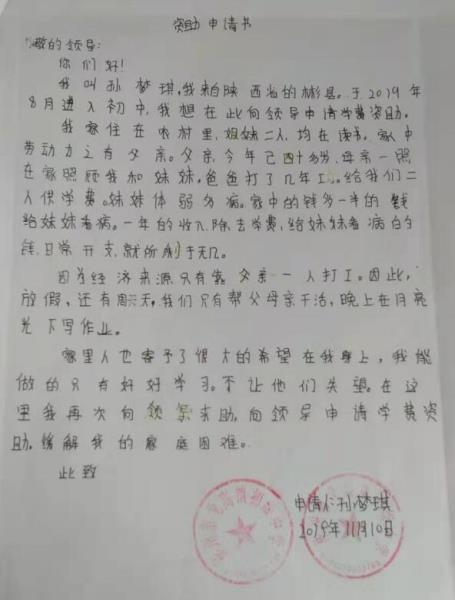 资助申请书
敬的领导:
你们好!
我叫孙梦琪,我来自陕西省的彬县。于2019年
8月进入初中,我想在此向领导申请学费资助。
我家住在农村里,姐妹二人,均在读书,家中
劳动力之有父亲。父亲今年已四十多岁,母亲一照
在家照顾我和妹妹,爸爸打了几年工。给我们二
人供学费。妹妹体弱多病。家中的钱多一半的都
给妹妹看病。一年的收入除去学费,给妹妹看病的
钱,日常开支,就所剩于无几。
因为经济来源只有靠父亲一人打工。因此,
放假、还有周六天,我们只有帮父母亲干活,晚上在月亮
光下写作业。
家里人也寄予了很大的希望在我身上,我能
做的只有好好学习。不让他们失望。在这
里我再次向领导求助,向领导申请学费资
助,缓解我的家庭困难。
此致
申请人:孙梦琪
2019年11月10日